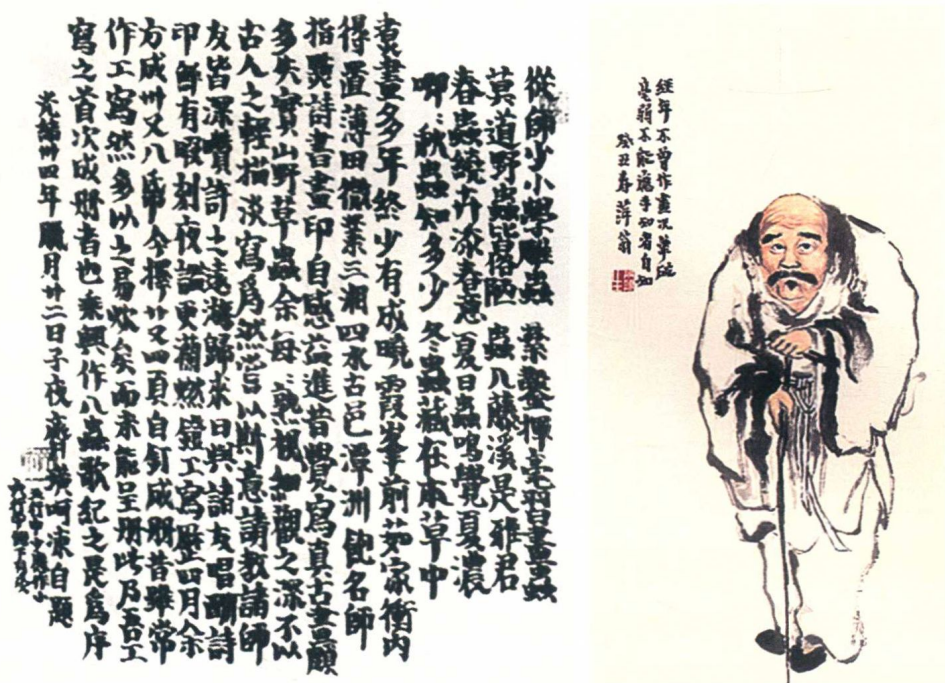 從師少小學雕蟲 棄鑿揮毫習畫蟲
莫道野蟲皆俗陋 蟲入藤溪是雅君
春蟲繞卉添春意 夏日蟲鳴覺夏濃
唧〻秋蟲知多少 冬蟲藏在本草中
煮畫多年終少有成曉霞峯前茹家衝內
得置薄田微業三湘四水古邑潭洲飽名師
指點詩書畫印自感益進昔覺寫真古畫顧
多失實山野草蟲余每〻熟視細觀之深不以
古人之輕描淡寫為然嘗以斯意請教諸師
友皆深贊許之遠游歸來日與諸友唱酬詩
印鮮有暇刻夜謐更蘭燃鐙工寫歷四月余
方成卅又八幀今擇廿又四頁自釘成冊昔雖常
作工寫然多以之易炊矣而未能呈冊此乃吾工
寫之首次成冊者也乘興作八蟲歌紀之畏為序
光緒卅四年臘月廿二日子夜齊璜呵凍自題
經年不曾作畫況筆硯
毫弱不能應手知者自知
癸丑春萍翁